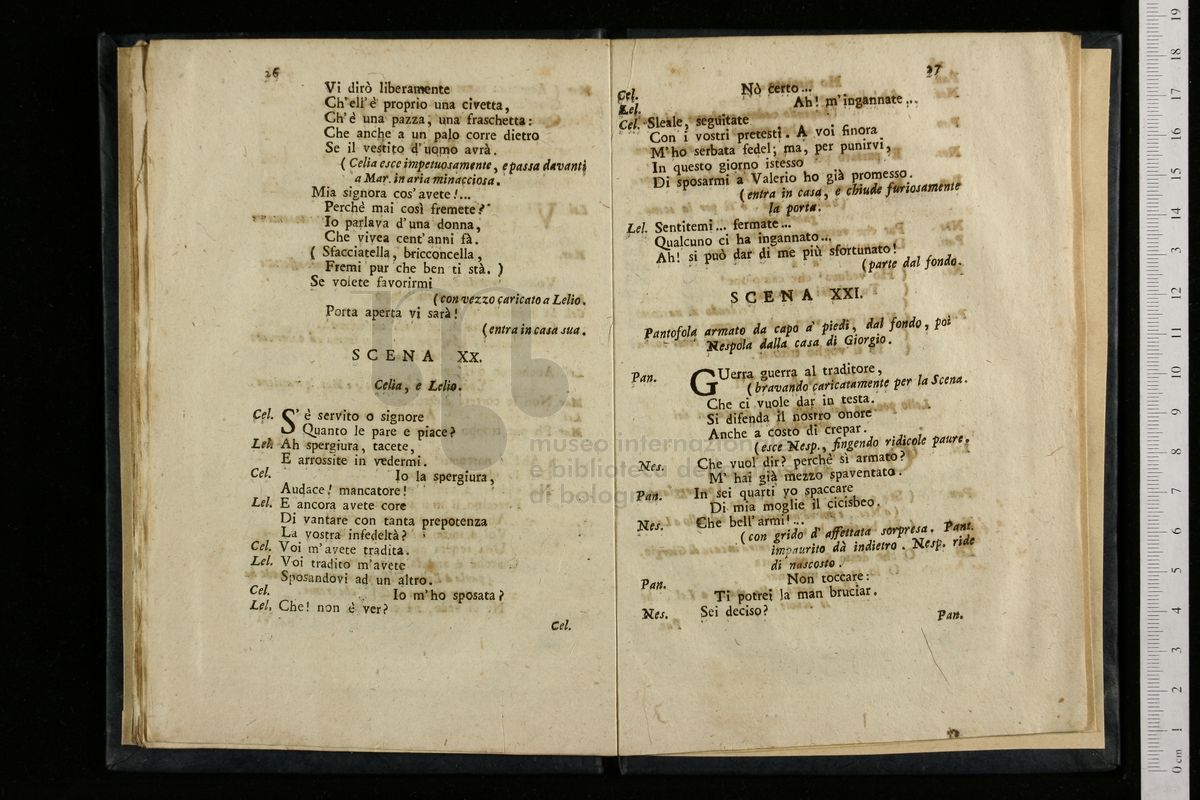 26
Vi dirò liberamente
Ch'ell'è proprio una civetta,
Ch'è una pazza, una fraschetta:
Che anche a un palo corre dietro
Se il vestito d'uomo avrà.
(Celia esce impetuosamente, e passa davanti
a Mar. in aria minacciosa.
Mia signora cos'avete!...
Perchè mai così fremete?
Io parlava d'una donna,
Che vivea cent'anni fà.
( Sfacciatella, bricconcella,
Fremi pur che ben ti stà. )
Se volete favorirmi
(con vezzo caricato a Lelio.
Porta aperta vi sarà!
(entra in casa sua.
SCENA XX.
Celia, e Lelio.
Cel. S'è servito o signore
Quanto le pare e piace?
Lel. Ah spergiura, tacete,
E arrossite in vedermi.
Cel. Io la spergiura,
Audace! mancatore!
Lel. E ancora avete core
Di vantare con tanta prepotenza
La vostra infedeltà?
Cel. Voi m'avete tradita.
Lel. Voi tradito m'avete
Sposandovi ad un altro.
Cel. Io m'ho sposata?
Lel. Che! non è ver?
Cel.
27
Cel. Nò certo...
Lel. Ah! m'ingannate...
Cel. Sleale, seguitate
Con i vostri pretesti. A voi finora
M'ho serbata fedel; ma, per punirvi,
In questo giorno istesso
Di sposarmi a Valerio ho già promesso.
(entra in casa, e chiude furiosamente
la porta.
Lel. Sentitemi... fermate...
Qualcuno ci ha ingannato...
Ah! si può dar di me più sfortunato!
(parte dal fondo.
SCENA XXI.
Pantofola armato da capo a' piedi, dal fondo, poi
Nespola dalla casa di Giorgio.
Pan. GUerra guerra al traditore,
(bravando caricatamente per la Scena.
Che ci vuole dar in testa.
Si difenda il nostro onore
Anche a costo di crepar.
(esce Nesp., fingendo ridicole paure.
Nes. Che vuol dir? perchè sì armato?
M'hai già mezzo spaventato.
Pan. In sei quarti yo spaccare
Di mia moglie il cicisbeo.
Nes. Che bell'armi!...
(con grido d'affettata sorpresa. Pant.
impaurito dà indietro. Nesp. ride
di nascosto.
Pan. Non toccare:
Ti potrei la man bruciar.
Nes. Sei deciso?
Pan.
museo internazion
e biblioteca de
di bologn
0 cm 1 2 3 4 5 6 7 8 9 10 11 12 13 14 15 16 17 18 19